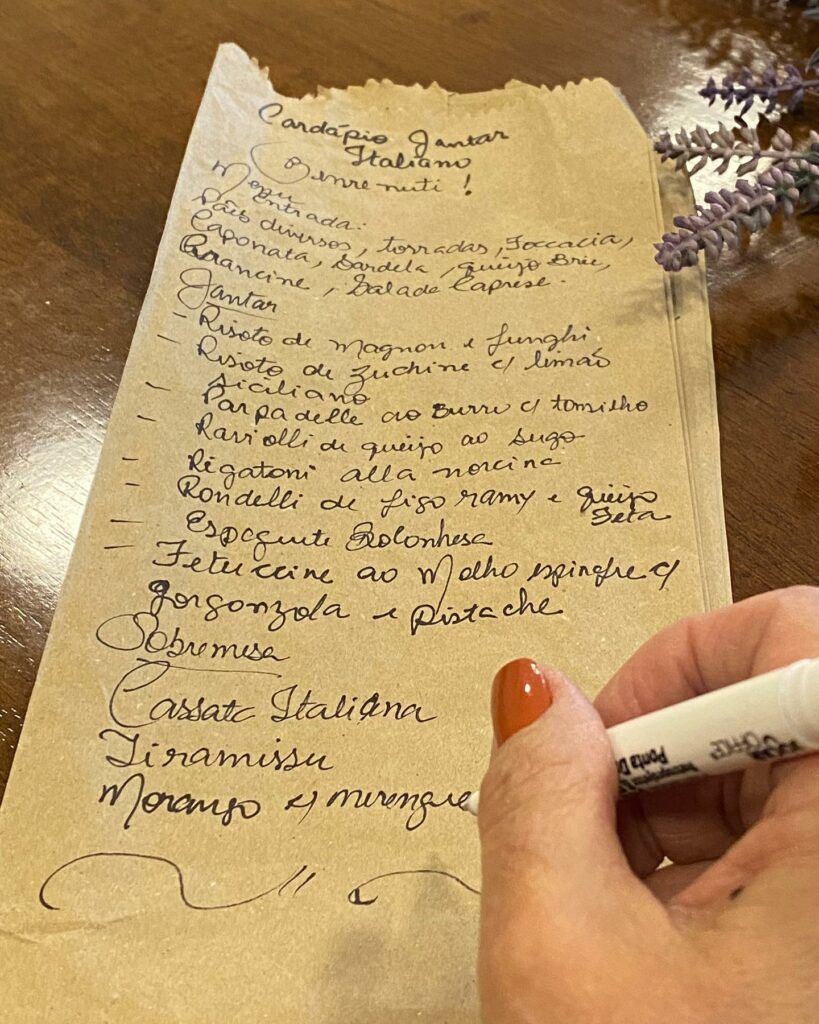 Cardápio Jantar
Italiano
Benvenuti !
Menu
Entrada:
Pães diversos, torradas, Foccacia,
Caponata, Sardela, queijo Brie,
Arancine, Salada Caprese.
Jantar
- Risoto de Magnon e funghi
- Risoto de Zuchine c/ limão
Siciliano
- Parpadelle ao Burro c/ tomilho
- Raviolli de queijo ao sugo
- Rigatoni alla norcina
- Rondelli de figo ramy e queijo
Feta
- Espaguete Bolonhesa
- Fetuccine ao Molho espinafre c/
gorgonzola e pistache
Sobremesa
Cassata Italiana
Tiramissu
Morango c/ merengue
Ponta